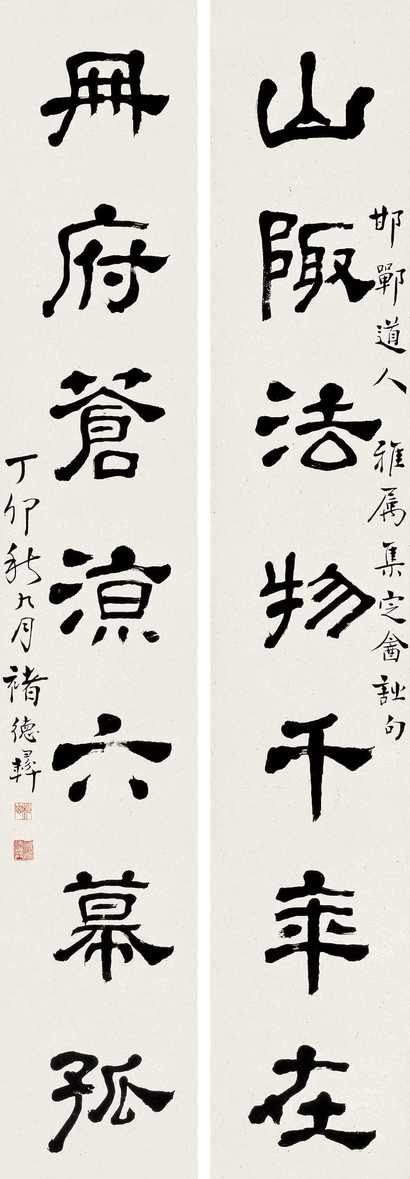 山陬法物千年在
邯鄲道人 雅属集定盦詩句
冊府蒼涼六幕孤
丁卯秋九月褚德彝